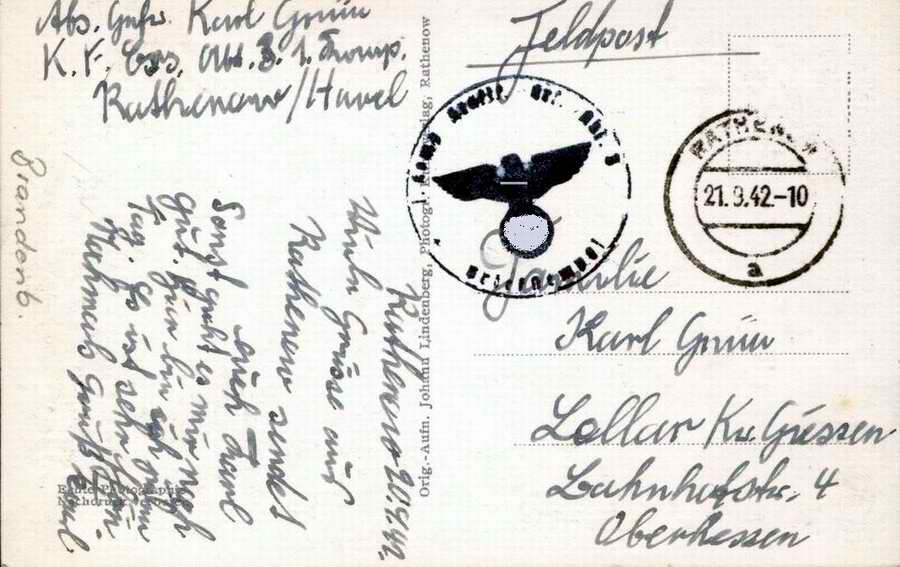 Abs. Gefr. Karl Grün
K. F. Ers. Abt. 3. 1. Komp.
Rathenow/Havel
Feldpost
RATHENOW
21.9.42-10
a
Briefstempel
Familie
Karl Grün
Lollar Kr. Giessen
Bahnhofstr. 4
Oberhessen
Orig.-Aufn. Johann Lindenberg, Photogr. Rathenow
Brandenb.
Rathenow 20.9.42.
Viele Grüsse aus
Rathenow sendet
euch Karl
Sonst geht es mir noch
gut. Hier bin ich
Tag. Es ist sehr
Nochmals Grüße Karl
Echte Photographie
Nachdruck verboten